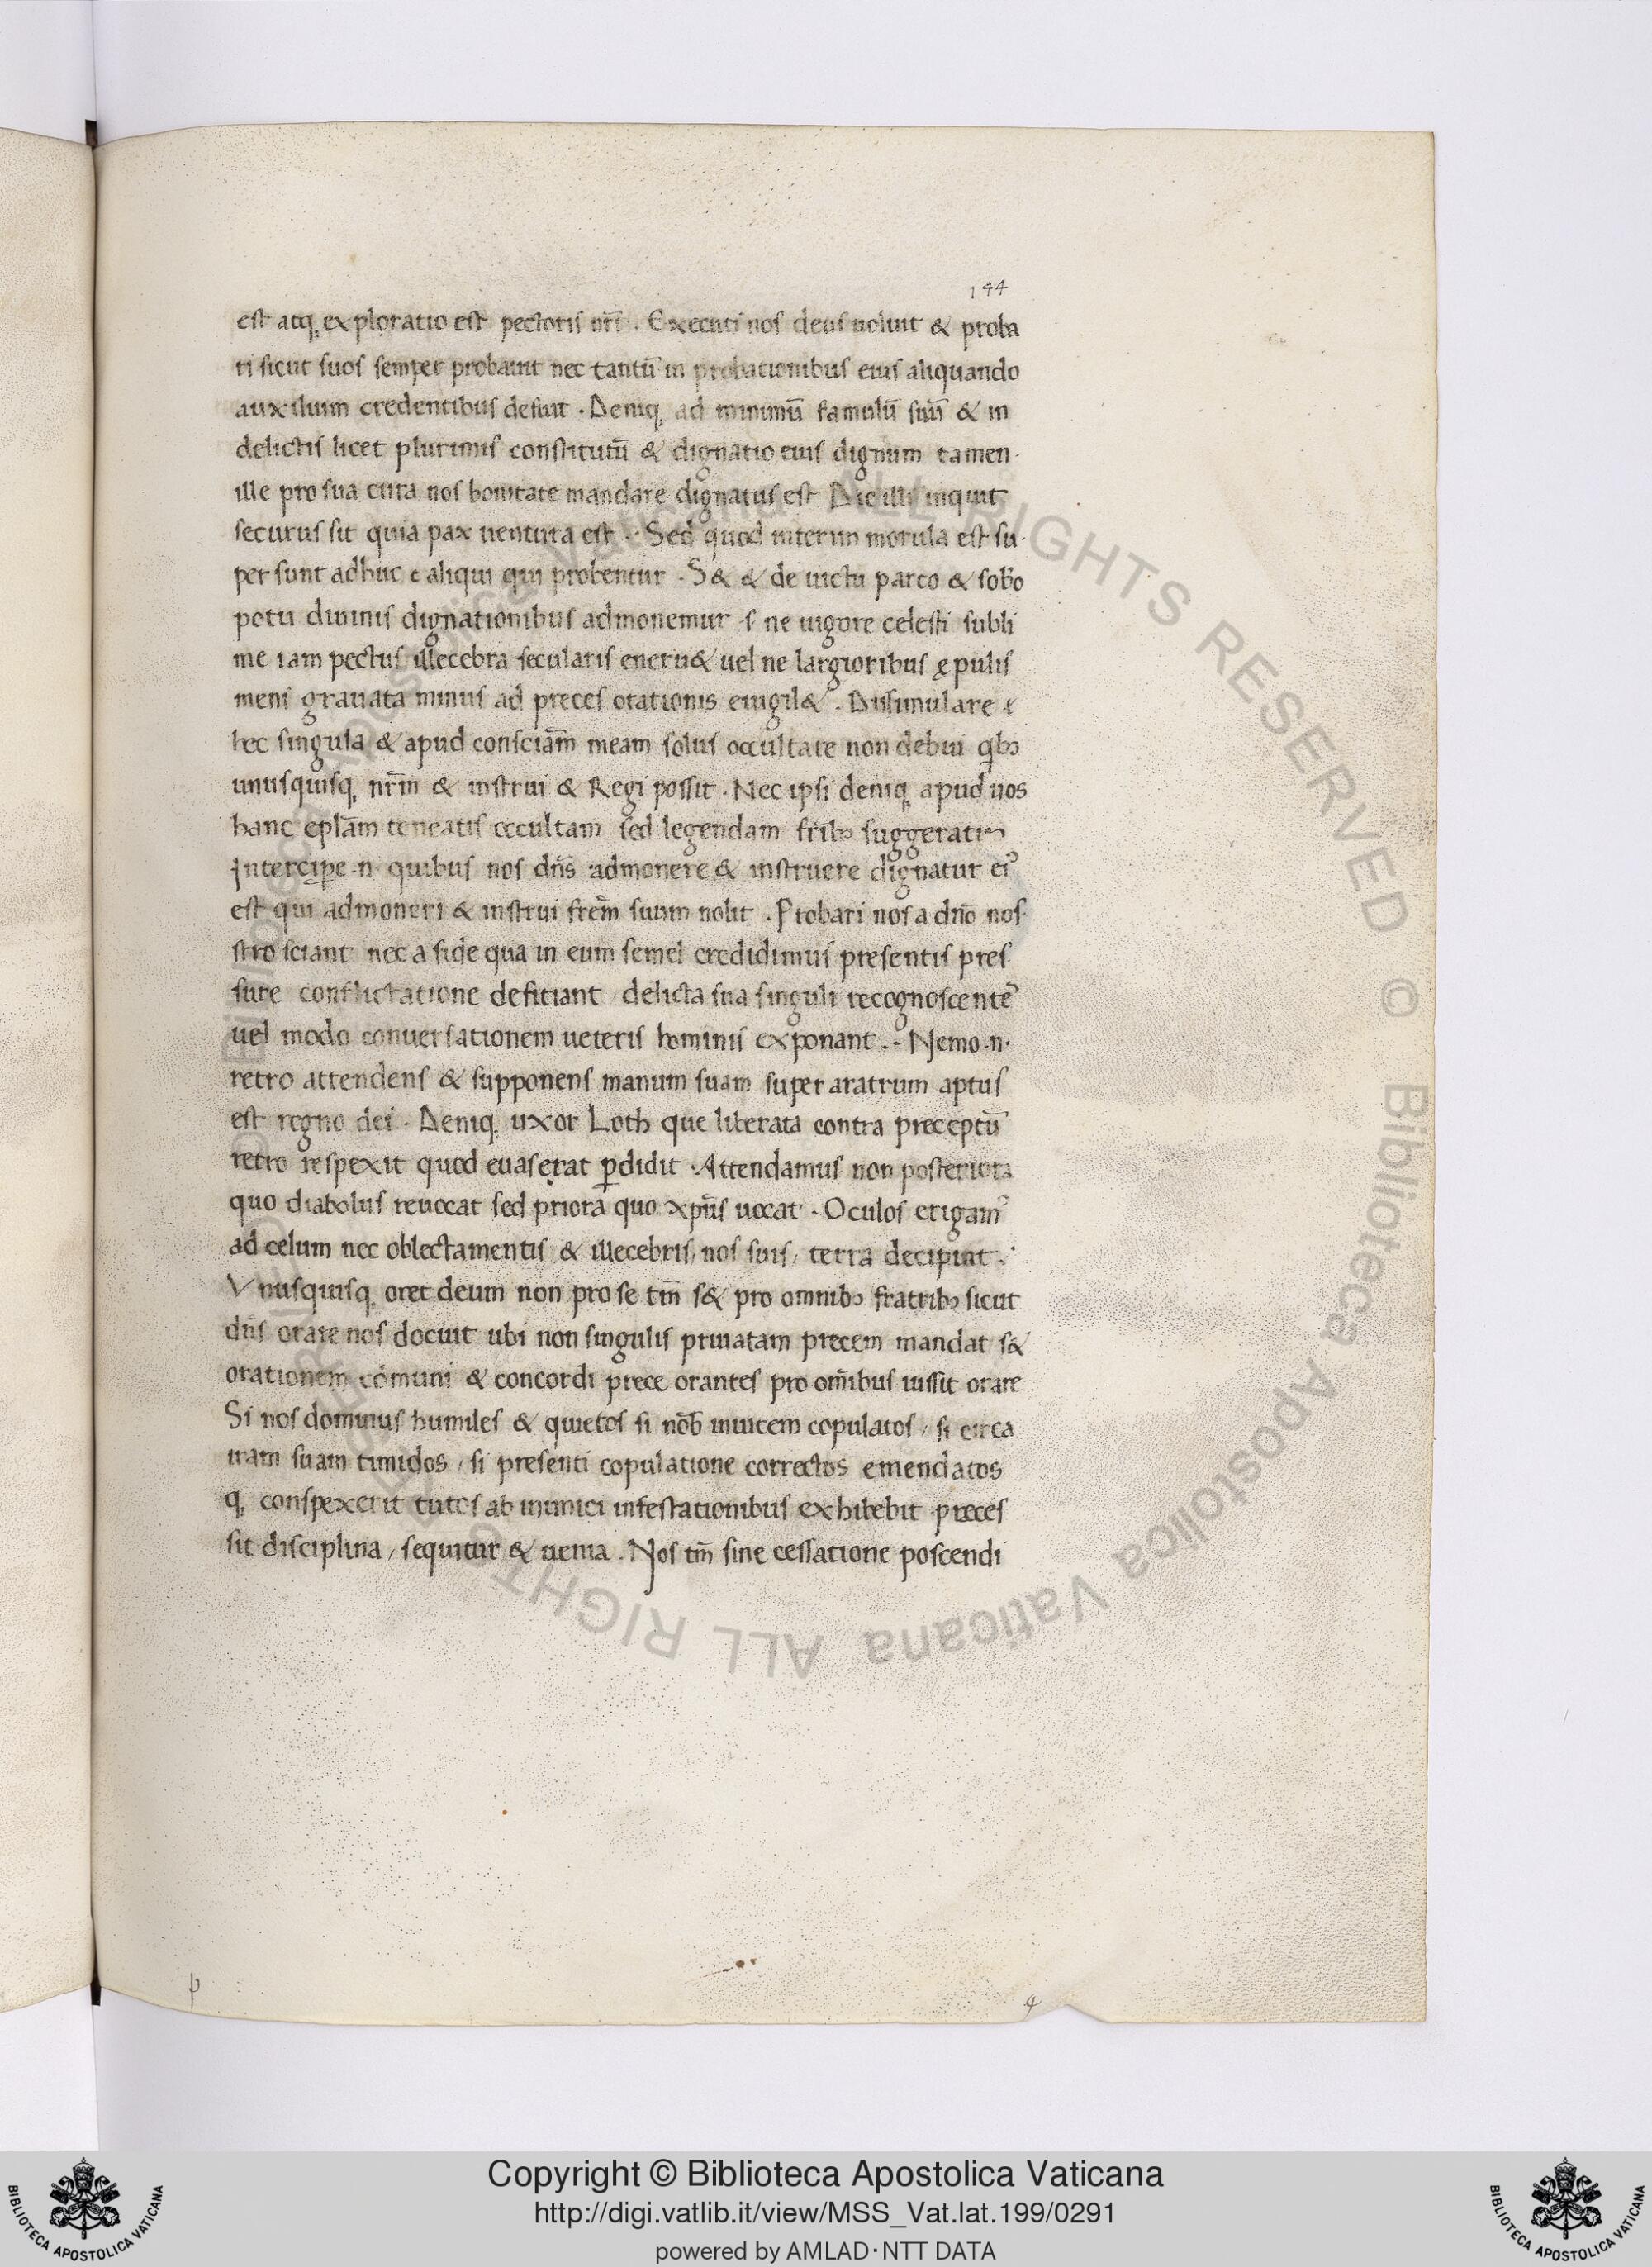 144
est atq; exploratio est pectoris nr̄i . Executi nos deus uoluit & proba
ri sicut suos semper probauit nec tantū in probationibus eius aliquando
auxilium credentibus defuit . Deniq; ad minimū famulū suū & in
delictis licet plurimis constitutū & dignatio eius dignum tamen
ille pro sua cura nos bonitate mandare dignatus est Dic illi inquit
securus sit quia pax uentura est . Sed quod interim morula est su
per sunt adhuc aliqui qui probentur . S& & de uictu parco & sobo
potu diuinis dignationibus admonemur s ne uigore celesti subli
me iam pectus illecebra secularis eneru& uel ne largioribus ępulis
mens grauata minus ad preces orationis euigil& . Dissimulare
hec singula & apud consciām meam solus occultare non debui qbꝫ
unusquisq; nr̄m & instrui & Regi possit . Nec ipsi deniq; apud uos
hanc eplām teneatis occultam sed legendam frībꝫ suggeratis
Intercipe .n. quibus nos dn̄s admonere & instruere dignatur ei᾿
est qui admoneri & instrui frēm suum nolit . Probari nos a dn̄o nos
stro sciant nec a fide qua in eum semel credidimus presentis pres
sure conflictatione defitiant delicta sua singuli recognoscente᾿
uel modo conuersationem ueteris hominis exponant . Nemo .n.
retro attendens & supponens manum suam super aratrum aptus
est regno dei . Deniq; uxor Loth que liberata contra preceptū
retro respexit quod euaserat ꝑdidit . Attendamus non posteriora
quo diabolus reuocat sed priora quo xpūs uocat . Oculos erigam᾿
ad celum nec oblectamentis & illecebris, nos suis, terra decipiat .
Vnusquisq; oret deum non pro se tm̄ s& pro omnibꝫ fratribꝫ sicut
dn̄s orare nos docuit ubi non singulis priuatam precem mandat s&
orationem cōmuni & concordi prece orantes pro om̄ibus iussit orare
Si nos dominus humiles & quietos si nōb inuicem copulatos / si circa
iram suam timidos / si presenti copulatione correctos emendatos
q; conspexerit tutos ab inimici infestationibus exhibebit preces
sit disciplina / sequitur & uenia . Nos tm̄ sine cessatione poscendi
Copyright © Biblioteca Apostolica Vaticana
http://digi.vatlib.it/view/MSS_Vat.lat.199/0291
powered by AMLAD·NTT DATA